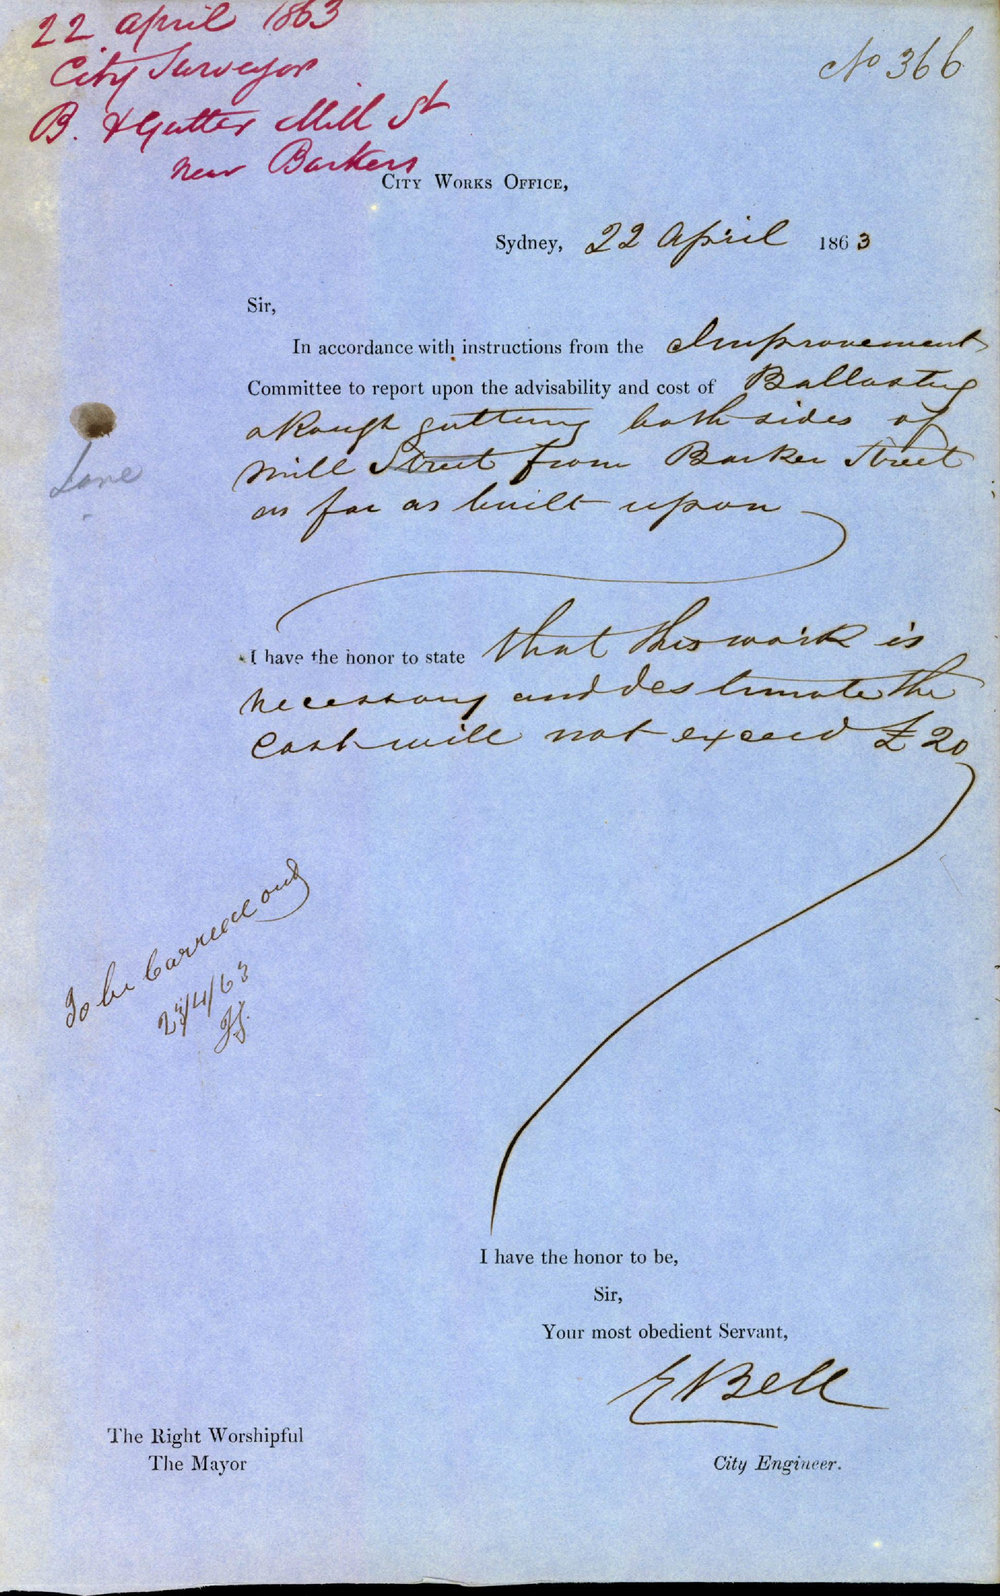 22 April 1863
City Surveyor
B. & Gutter Mill St
near Barkers
No 366
City Works Office,
Sydney, 22 April 1863
Sir,
In accordance with instructions from the Improvement
Committee to report upon the advisability and cost of Ballasting
& Rough guttering both sides of
Mill Street from Barker Street
as far as built upon
Lane
I have the honor to state that this work is
necessary and estimate the
Cost will not exceed £20
To be Carried out
23/4/63
I have the honor to be,
Sir,
Your most obedient Servant,
E Bell
The Right Worshipful
The Mayor
City Engineer.